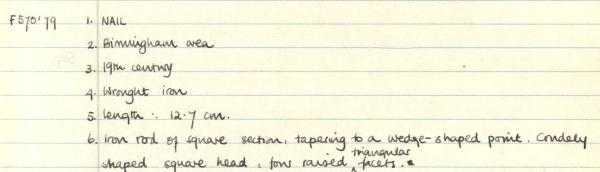 F570'79 1. NAIL
2. Birmingham area
3. 19th century
4. Wrought iron
5. Length : 12.7 cm.
6. Iron rod of square section, tapering to a wedge-shaped point. Crudely
shaped square head, four raised triangular facets.